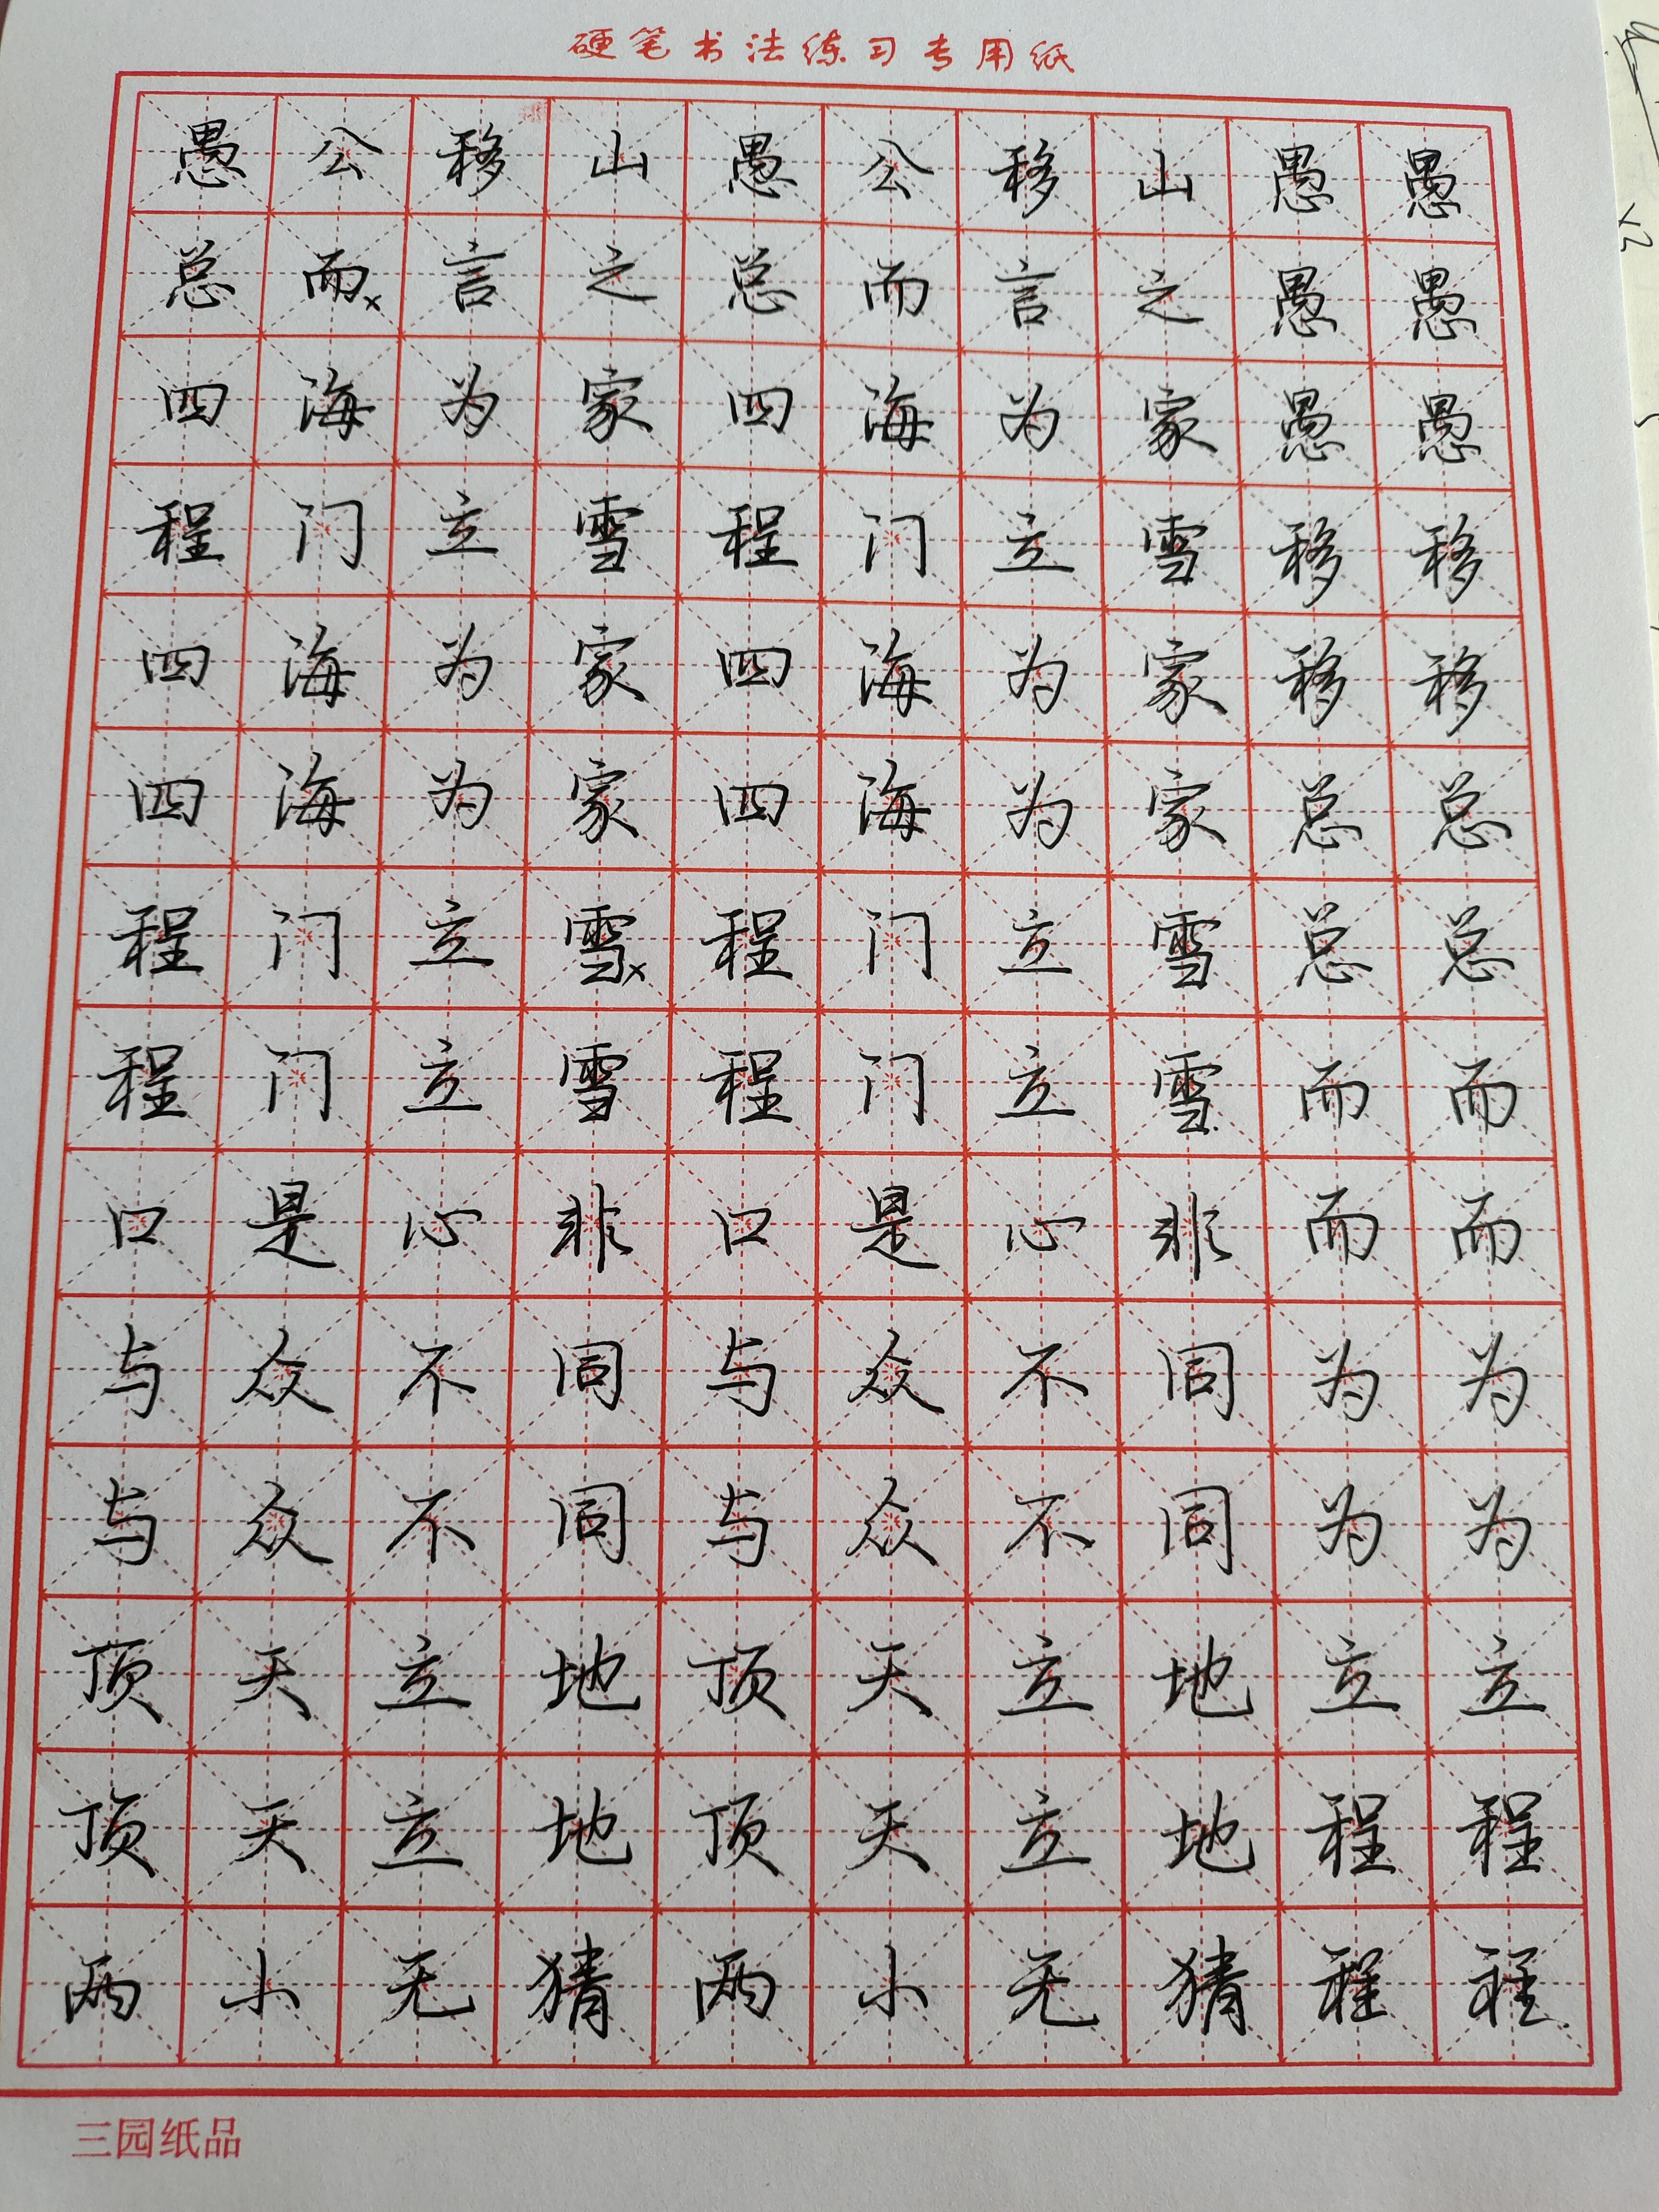 硬笔书法练习专用纸
愚公移山愚公移山愚愚
总而言之总而言之愚愚
四海为家四海为家愚愚
程门立雪程门立雪移移
四海为家四海为家移移
四海为家四海为家总总
程门立雪程门立雪总总
程门立雪程门立雪而而
口是心非口是心非而而
与众不同与众不同为为
与众不同与众不同为为
顶天立地顶天立地立立
顶天立地顶天立地程程
两小无猜两小无猜程程
三园纸品